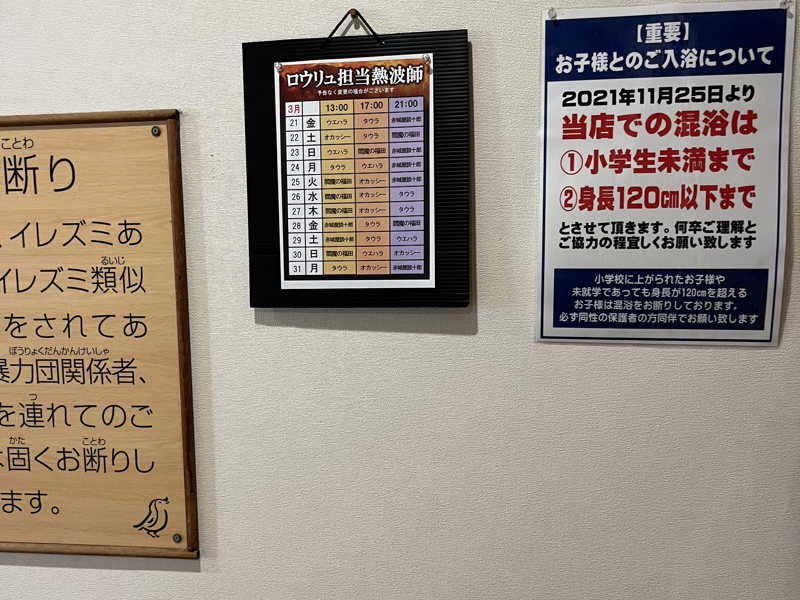 ことわ
断り
、イレズミあ
るいじ
イレズミ類似
をされてあ
ぼうりょくだんかんけいしゃ
暴力団関係者、
つ
を連れてのご
かた ことわ
は固くお断りし
ます。
ロウリュ担当熱波師
予告なく変更の場合がございます
3月 13:00 17:00 21:00
21 金 ウエハラ タウラ 赤城屋談十郎
22 土 オカッシー タウラ 閻魔の福田
23 日 ウエハラ 閻魔の福田 赤城屋談十郎
24 月 タウラ ウエハラ 赤城屋談十郎
25 火 閻魔の福田 オカッシー 赤城屋談十郎
26 水 閻魔の福田 オカッシー タウラ
27 木 閻魔の福田 オカッシー タウラ
28 金 赤城屋談十郎 タウラ 閻魔の福田
29 土 赤城屋談十郎 タウラ ウエハラ
30 日 閻魔の福田 ウエハラ オカッシー
31 月 タウラ オカッシー 赤城屋談十郎
【重要】
お子様とのご入浴について
2021年11月25日より
当店での混浴は
①小学生未満まで
②身長120cm以下まで
とさせて頂きます。何卒ご理解と
ご協力の程宜しくお願い致します
小学校に上がられたお子様や
未就学であっても身長が120cmを超える
お子様は混浴をお断りしております。
必ず同性の保護者の方同伴でお願い致します